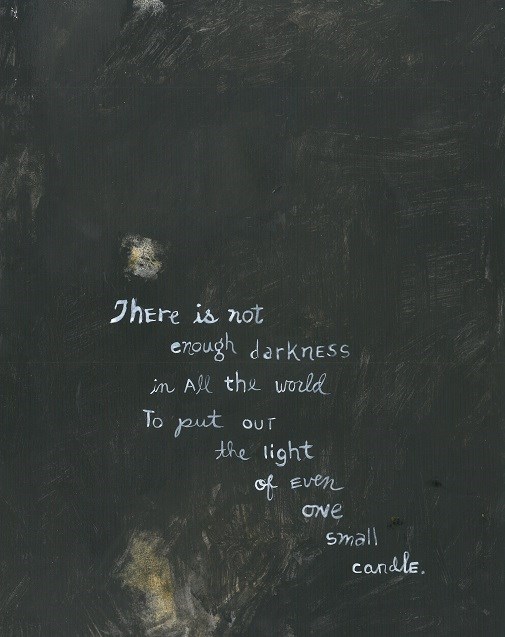 There is not
enough darkness
in All the world
To put out
the light
of EVEN
one
small
candle.